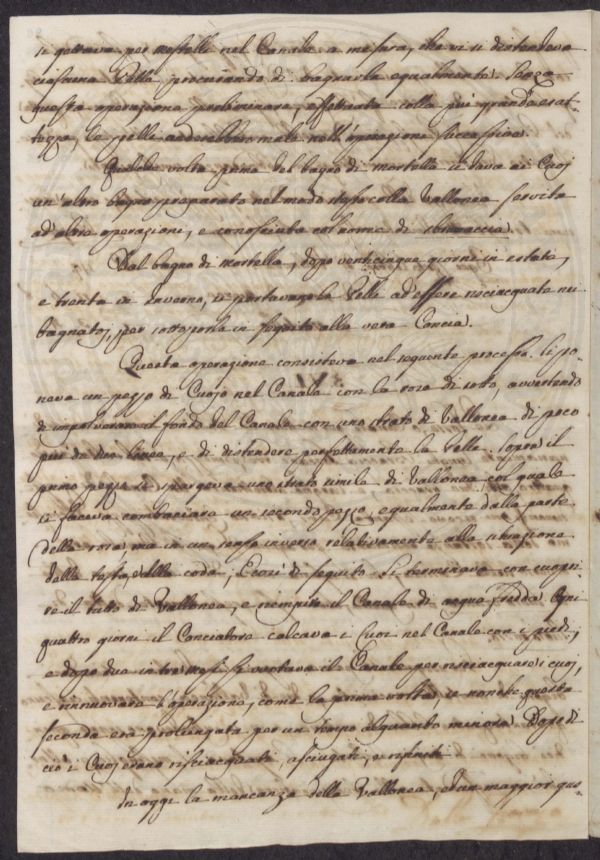 si gettava per mastelli nel Canale a misura, che vi si distendeva
ciascuna Pelle procurando di bagnarla egualmente. Senza
questa operazione preliminare, effettuata colla più grande esat-
tezza, le pelli anderebbero male nell'operazione successiva.
Qualche volta prima del bagno di mortella si dava ai Cuoj
un'altro bagno preparato nel modo stesso colla Vallonea servita
ad altre operazioni, e conosciuta col nome di
Dal bagno di mortella, dopo venticinque giorni in estate,
e trenta in Inverno, si portavano le Pelle ad essere risciacquate nei
bagnatoj, per sottoporle in seguito alla vera Concia.
Questa operazione consisteva nel seguente processo. Si po-
neva un pezzo di Cuojo nel Canale con la rosa di sotto, avvertendo
di impolverare il fondo del Canale con uno strato di Vallonea di poco
più di due linee, e di distendere perfettamente la Pelle. Sopra il
primo pezzo si spargeva uno strato simile di Vallonea, col quale
si faceva combaciare un secondo pezzo, egualmente dalla parte
della rosa, ma in un senso inverso relativamente alla situazione
della testa, e della coda; E così di seguito. Si terminava con cuopri-
re il tutto di Vallonea, e riempire il Canale di acqua fredda. Ogni
quattro giorni il Conciatore calcava i Cuoj nel Canale con i piedi;
e dopo due in tre mesi si vuotava il Canale per risciacquare i cuoj,
e rinnuovare l'operazione, come la prima volta, se non che questa
seconda era prolungata per un tempo alquanto minore. Dopo di
ciò i Cuoj erano risciacquati, asciugati, e rifiniti.
In oggi la mancanza della Vallonea, ed un maggior gua-